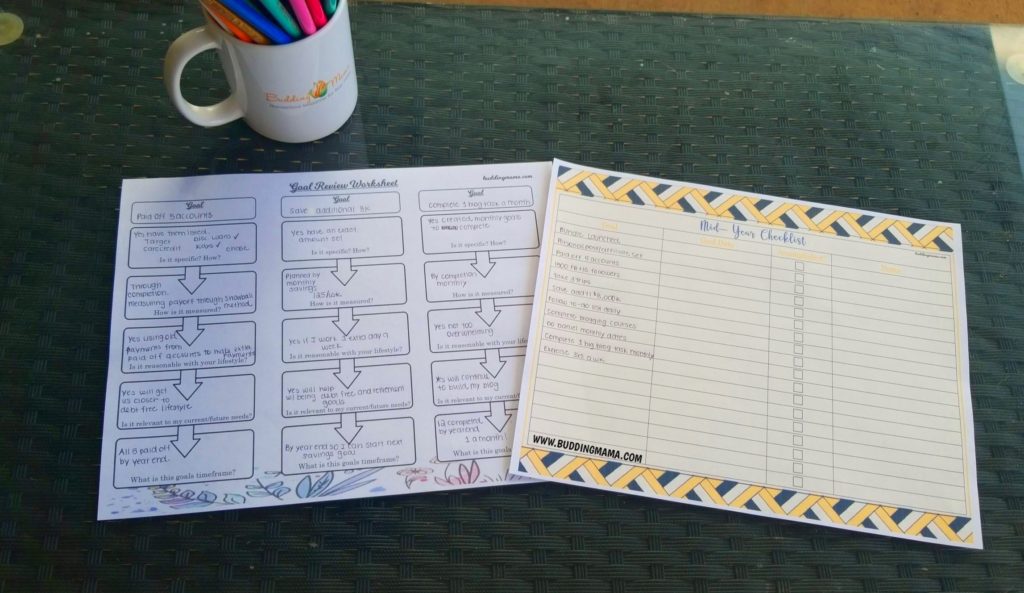 Budding Mama
Goal Review Worksheet
buddingmama.com
Goal
Paid off 5 accounts
Yes have them listed.
Target Disc ward ✓
car credit Kohls ✓ chase
Is it specific? How?
Through
completion.
measuring payoff through snowball
method.
How is it measured?
Yes using old
payments from
paid off accounts to make extra
payments
Is it reasonable with your lifestyle?
Yes will get
us closer to
debt free lifestyle
Is it relevant to my current/future needs?
All 5 paid off
by year end.
What is this goals timeframe?
Goal
Save additional
Yes have an exact
amount set
Is it specific? How?
Planned by
monthly
savings
How is it measured?
Yes if I work 1 extra day a
week
Is it reasonable with your lifestyle?
Yes will help
w/ being debt free and retirement
goals
Is it relevant to my current/future needs?
By year end so I can start next
savings goal
What is this goals timeframe?
Goal
Complete 1 blog task a month
Yes created, monthly goals
to complete
Is it specific? How?
By completion
monthly
How is it measured?
Yes not too
overwhelming
Is it reasonable with your lifestyle
Yes will continue
to build, my blog
Is it relevant to my current/future
12 completed
by year end
1 a month!
What is this goals
Mid-Year Checklist
buddingmama.com
Goal
Completed?
Notes
Bundle launched
Paid off 5 accounts
followers
Take 2 trips
Save addt'l
Follow to-do list daily
Complete blogging courses
monthly dates
Complete 1 big blog task monthly
Exercise 3x5 a wk
WWW.BUDDINGMAMA.COM